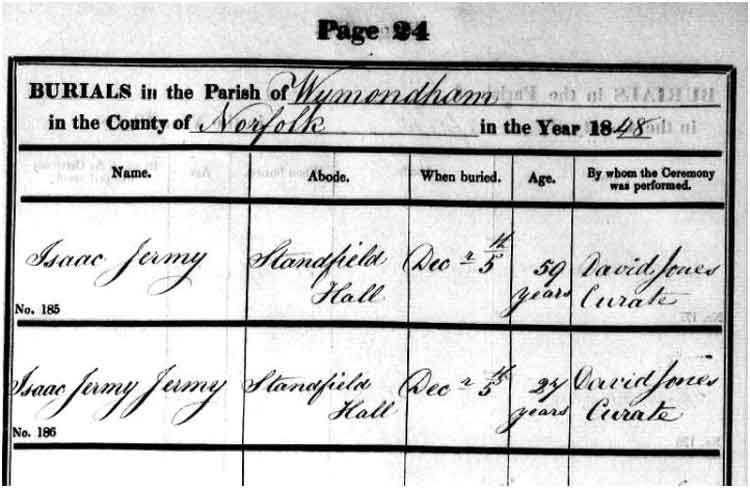 Page 24
BURIALS in the Parish of Wymondham
in the County of Norfolk in the Year 1848
Name. Abode. When buried. Age. By whom the Ceremony was performed.
Isaac Jermy Standfield Hall Decr 5th 59 years David Jones Curate
No. 185
Isaac Jermy Jermy Standfield Hall Decr 5th 27 years David Jones Curate
No. 186